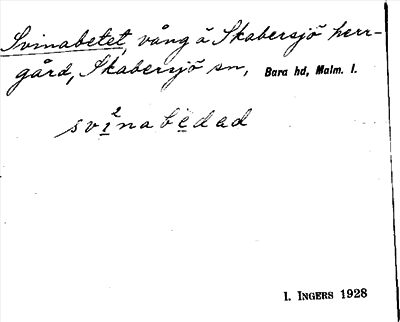 Svinabetet, vång å Skabersjö herr-
gård, Skabersjö sn, Bara hd, Malm. l.
svi²nabedad
I. INGERS 1928